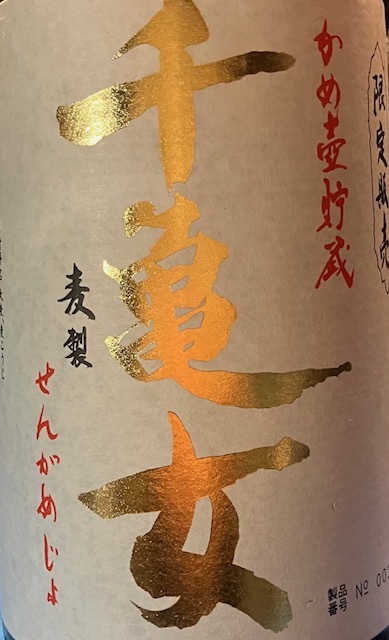 限定販売
かめ壷貯蔵
千亀女
麦製
せんがめじょ
製品番号 № 00